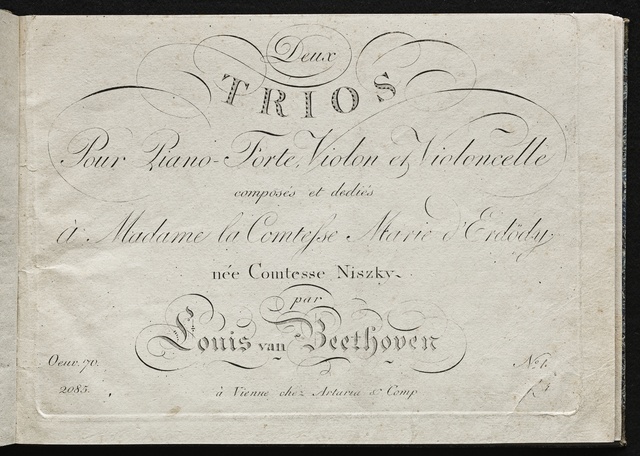 Deux
TRIOS
Pour Piano-Forte, Violon et Violoncelle
composés et dediés
à Madame la Comtesse Marie d'Erdödy
née Comtesse Niszky.
par
Louis van Beethoven
Oeuv. 70.
No. 1.
2085.
à Vienne chez Artaria & Comp